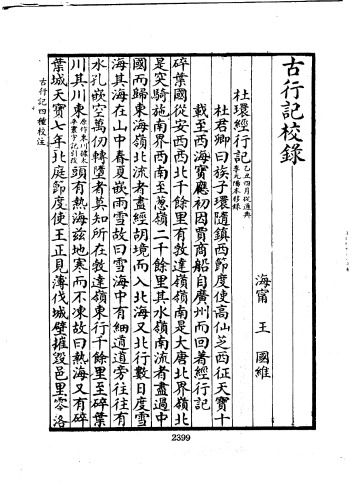 古行記校錄
海甯　王　國維
杜環經行記乙丑四月從通典李元陽本移錄
杜君卿曰族子環隨鎮西節度使高仙芝西征天寶十
載至西海寶應初因賈商船自廣州而回著經行記
碎葉國從安西西北千餘里有敦達嶺嶺南是大唐北界嶺北
是突騎施南界西南至葱嶺二千餘里其水嶺南流者盡過中
國而歸東海嶺北流者盡經胡境而入北海又北行數日度雪
海其海在山中春夏嵌雨雪故曰雪海中有細道道旁往往有
水孔嵌空萬仞轉墮者莫知所在敦達嶺東行千餘里至碎葉
川其川東頭有熱海茲地寒而不凍故曰熱海又有碎
葉城天寶七年北庭節度使王正見薄伐城壁摧毀邑里零洛
古行記四種校注
2399